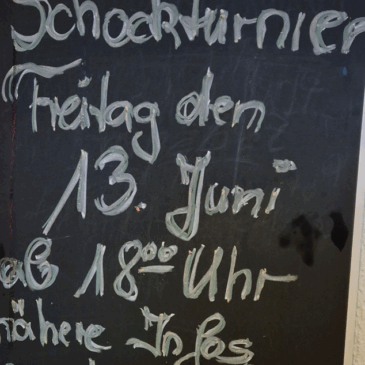 Schockturnier
Freitag dem
13. Juni
ab 18⁰⁰ Uhr
nähere Infos